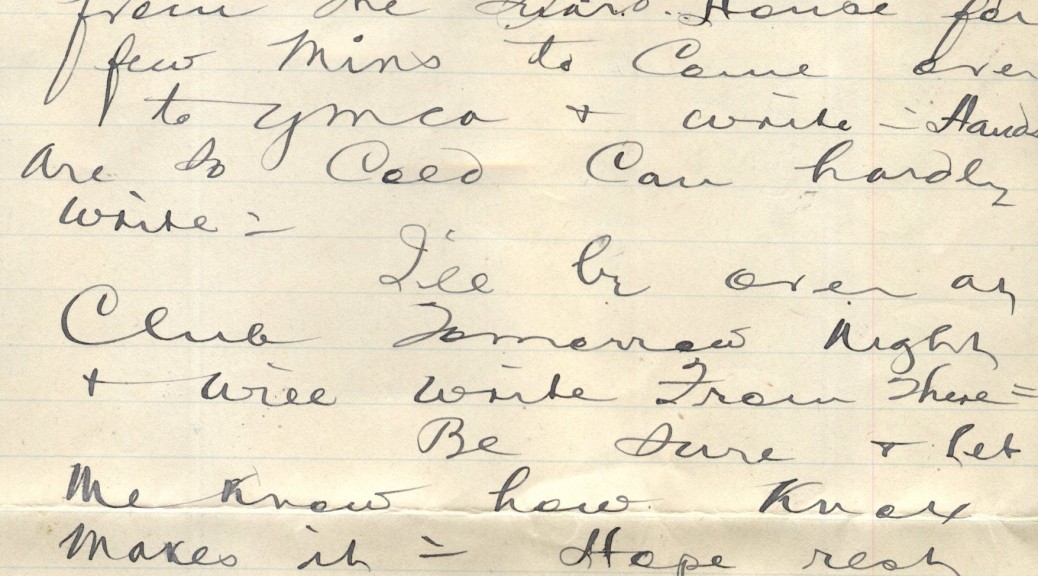 from the Guard House for
few Mins to Come over
to YMCA + write = Hands
Are So Cold Can hardly
write =
I'll be over at
Club Tomorrow Night
+ will write From There =
Be Sure + let
Me Know how Knox
Makes it = Hope rest